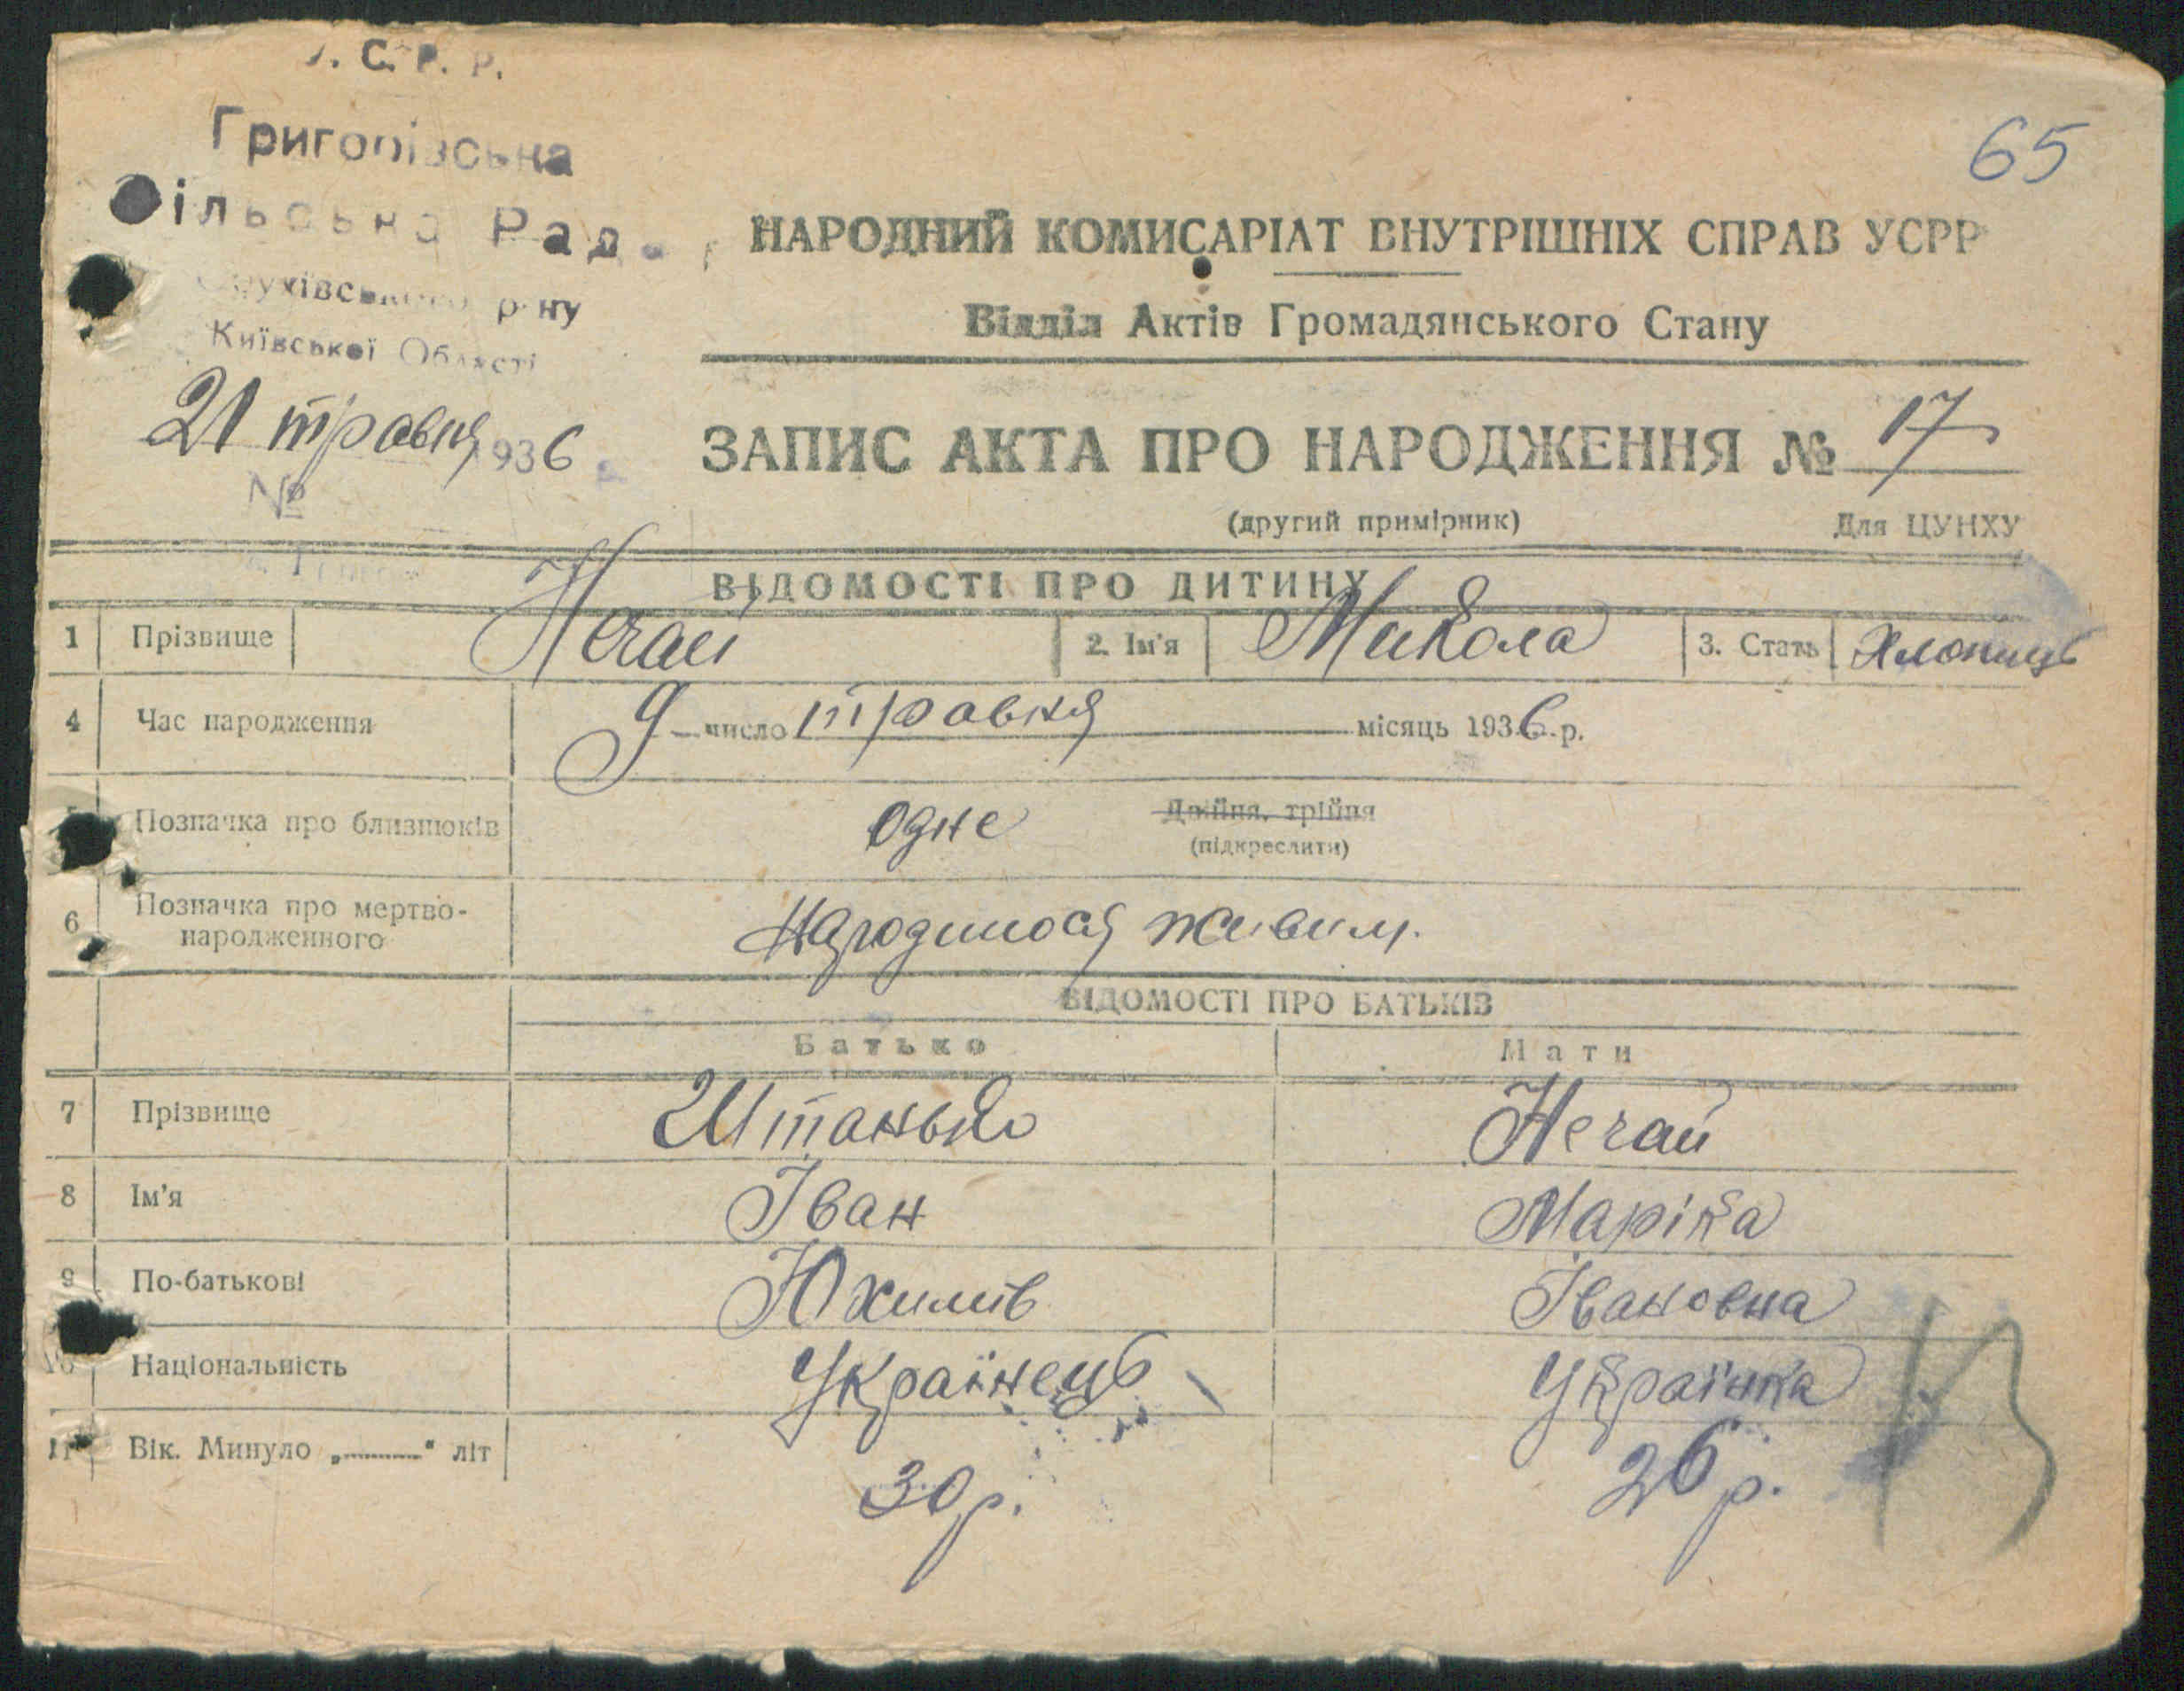 У. С. Р. Р.
Григорівська
Сільська Рада
р-ну
Київської Області
21 травня 1936
№
65
НАРОДНИЙ КОМИСАРІАТ ВНУТРІШНІХ СПРАВ УСРР
Відділ Актів Громадянського Стану
ЗАПИС АКТА ПРО НАРОДЖЕННЯ № 17
(другий примірник) Для ЦУНХУ
ВІДОМОСТІ ПРО ДИТИНУ
1 Прізвище Нечай 2. Ім'я Микола 3. Стать Хлопець
4 Час народження 9 число травня місяць 1936 р.
Позначка про близнюків одне Двійня, трійня
(підкреслити)
6 Позначка про мертво-
народженного Народилося живим.
ВІДОМОСТІ ПРО БАТЬКІВ
Батько Мати
7 Прізвище Штанько Нечай
8 Ім'я Іван Маріка
9 По-батькові Юхимів Івановна
10 Національність Українець Українка
11 Вік. Минуло „———" літ 30 р. 26 р.